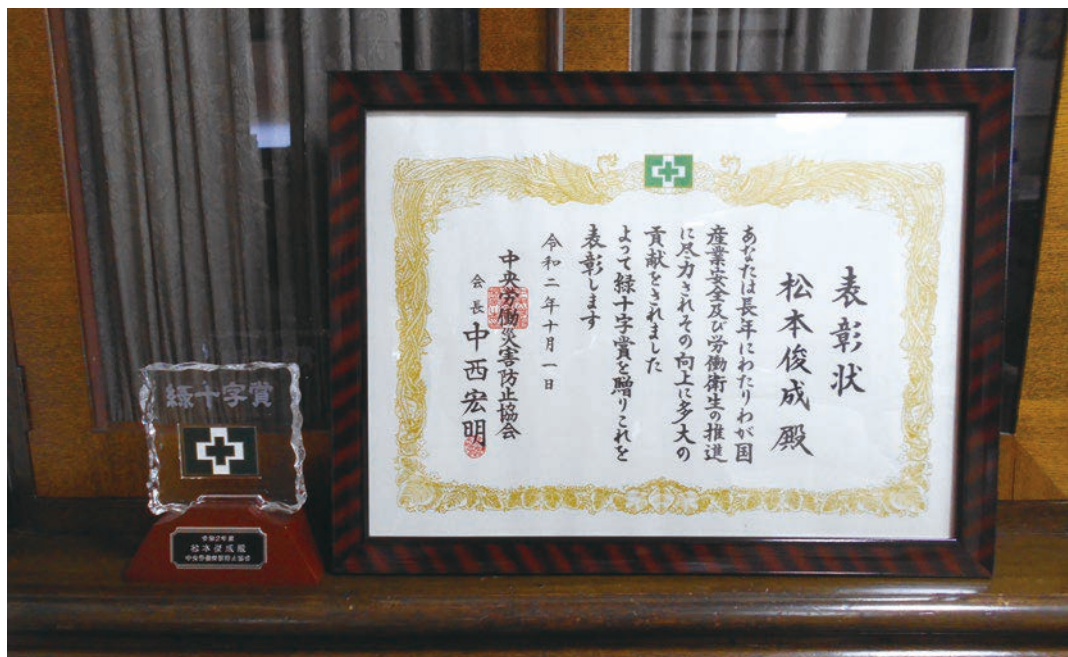 表彰状
松本俊成殿
あなたは長年にわたりわが国
産業安全及び労働衛生の推進
に尽力されその向上に多大の
貢献をされました
よって緑十字賞を贈りこれを
表彰します
令和二年十月一日
中央労働災害防止協会
会長 中西宏明
緑十字賞
令和2年度
松本俊成殿
中央労働災害防止協会